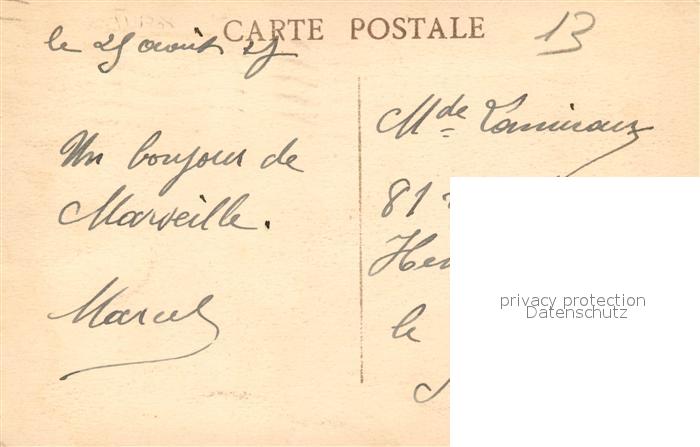 CARTE POSTALE
13
le 25 août 27
Un bonjour de
Marseille.
Marcel
Mde
81
le
privacy protection
Datenschutz